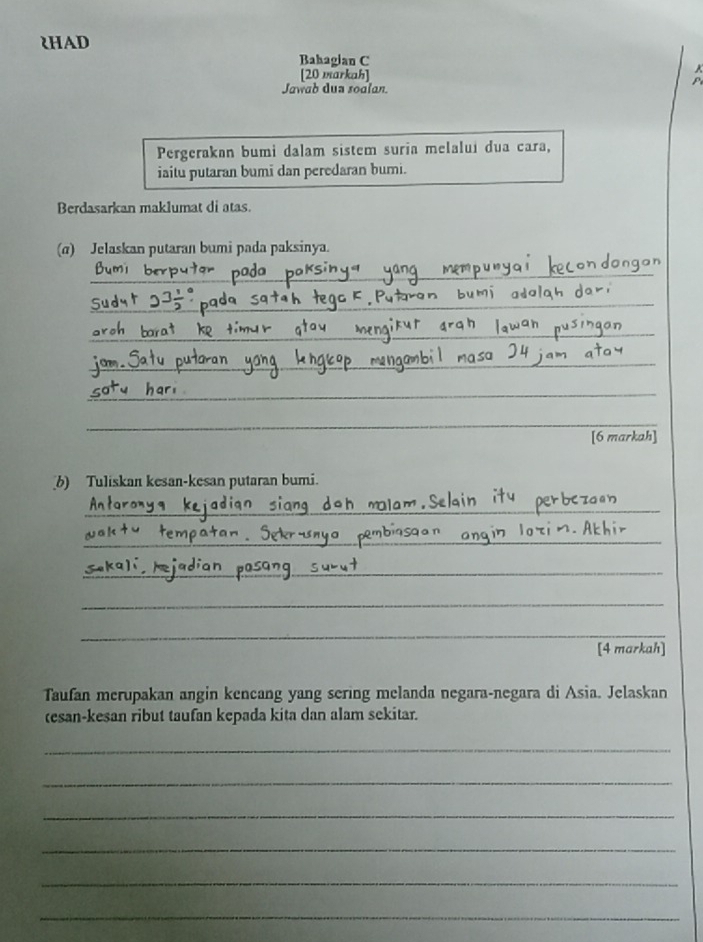 RHAD
Bahagian C
[20 markah]
Jawab dua soalan.
Pergerakan bumi dalam sistem suria melalui dua cara,
iaitu putaran bumi dan peredaran bumi.
Berdasarkan maklumat di atas.
(a) Jelaskan putaran bumi pada paksinya.
Bumi berputar pada paksinya yang mempunyai kecondongan
sudut 23½° pada satah tegak. Putaran bumi adalah dari
arah barat ke timur atau mengikut arah lawan pusingan
jam. Satu putaran yang lengkap mengambil masa 24 jam atau
satu hari.
[6 markah]
b) Tuliskan kesan-kesan putaran bumi.
Antaranya kejadian siang dan malam. Selain itu perbezaan
waktu tempatan. Seterusnya pembiasaan angin lazim. Akhir
sekali, kejadian pasang surut
[4 markah]
Taufan merupakan angin kencang yang sering melanda negara-negara di Asia. Jelaskan
kesan-kesan ribut taufan kepada kita dan alam sekitar.